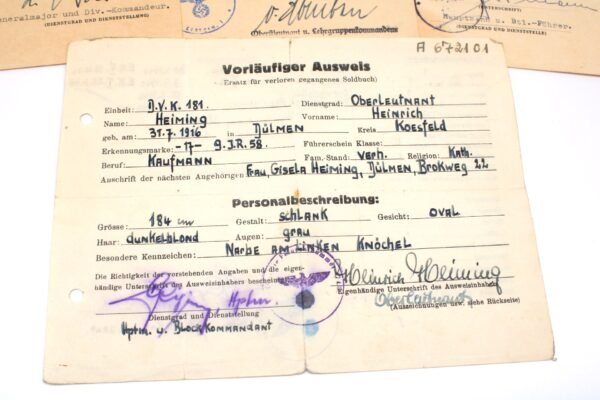 Generalmajor und Div.-Kommandeur.
(DIENSTGRAD UND DIENSTSTELLUNG)
Oberstleutnant u. Lehrgruppenkommandeur
(DIENSTGRAD UND DIENSTSTELLE)
(UNTERSCHRIFT)
Hauptmann u. Btl.-Führer.
(DIENSTGRAD UND DIENSTSTELLE)
A 672101
Vorläufiger Ausweis
(Ersatz für verloren gegangenes Soldbuch)
Einheit: D.V.K. 181. Dienstgrad: Oberleutnant
Name: Heiming Vorname: Heinrich
geb. am: 31.7.1916 in Dülmen Kreis Koesfeld
Erkennungsmarke: -17- 9.I.R.58. Führerschein Klasse:
Beruf: Kaufmann Fam. Stand: verh. Religion: Kath.
Anschrift der nächsten Angehörigen Frau, Gisela Heiming, Dülmen, Brokweg 22
Personalbeschreibung:
Grösse: 184 cm Gestalt: schlank Gesicht: oval
Haar: dunkelblond Augen: grau
Besondere Kennzeichen: Narbe am linken Knöchel
Die Richtigkeit der vorstehenden Angaben und die eigen-
händige Unterschrift des Ausweisinhabers bescheinigt
Heinrich Heiming
Eigenhändige Unterschrift des Ausweisinhabers
Hptm. Oberleutnant
Dienstgrad und Dienststellung (Auszeichnungen usw. siehe Rückseite)
Hptm. u. Blockkommandant